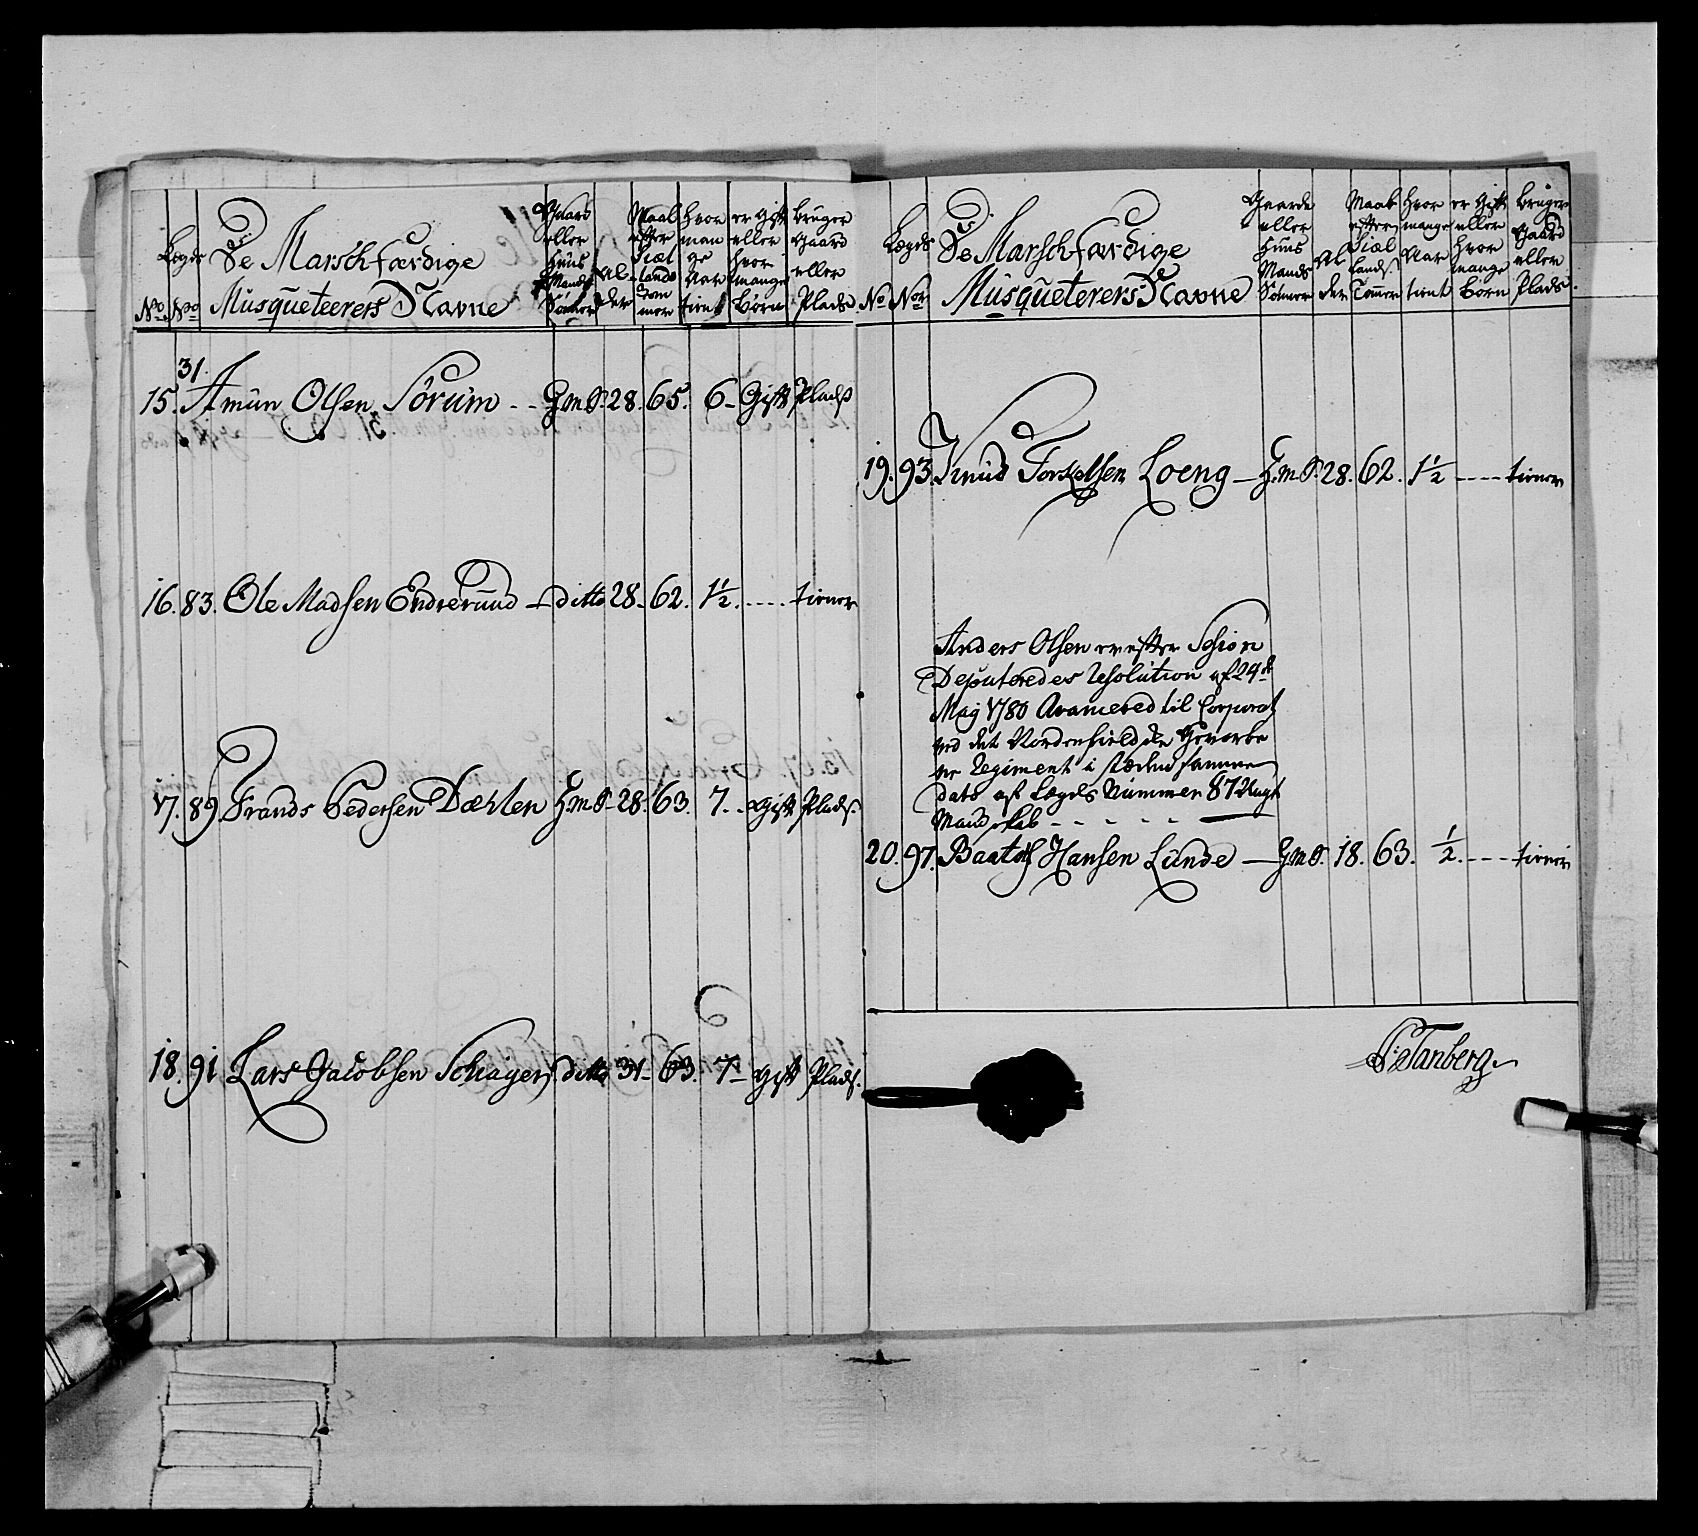 No
Legds
No
De Marschfærdige
Musqueteerers Navne
Gaard
eller
Huus
Mands
Sønner
Al-
der
Maal
efter
Siæl
lands
Tom
mer
hvor
man
ge
Aar
tient
er gift
eller
hvor
mange
Børn
bruger
Gaard
eller
Plads
15. 31. Amun Olsen Sørum - - G.m.S. 28. 65. 6 - Gift Plads
16. 83. Ole Madsen Endrerund - ditto 28. 62. 1½ . - - - tiener
17. 89. Frands Pedersen Dæhlen H.m.S. 28. 63. 7. - gift Plads.
18. 91. Lars Jacobsen ditto 31 - 63. 7 - gift Plads.
No
Legds
No
De Marschfærdige
Musqueterers Navne
Gaards
eller
Huus
Mands
Sønner
Al
der
Maal
efter
Siæl
lands
Tommer
hvor
mange
Aar
tient
er gift
eller
hvor
mange
Børn
bruger
Gaard
eller
Plads.
19. 93. Knud Torkelsen Loeng - H.m.S. 28. 62. 1½ - - - - tiener
Anders Olsen er efter Session
Deputeredes Resolution af 24de
Maij 1780 Avancered til Corporal
ved det Nordenfieldske Gevorbe
ne Regiment i stæden samme
dato af Legds Nummer 87
Mandskab - - - - -
20. 97. Hansen Lunde - G.m.S. 18. 63. ½. - - - tiener
Tanberg